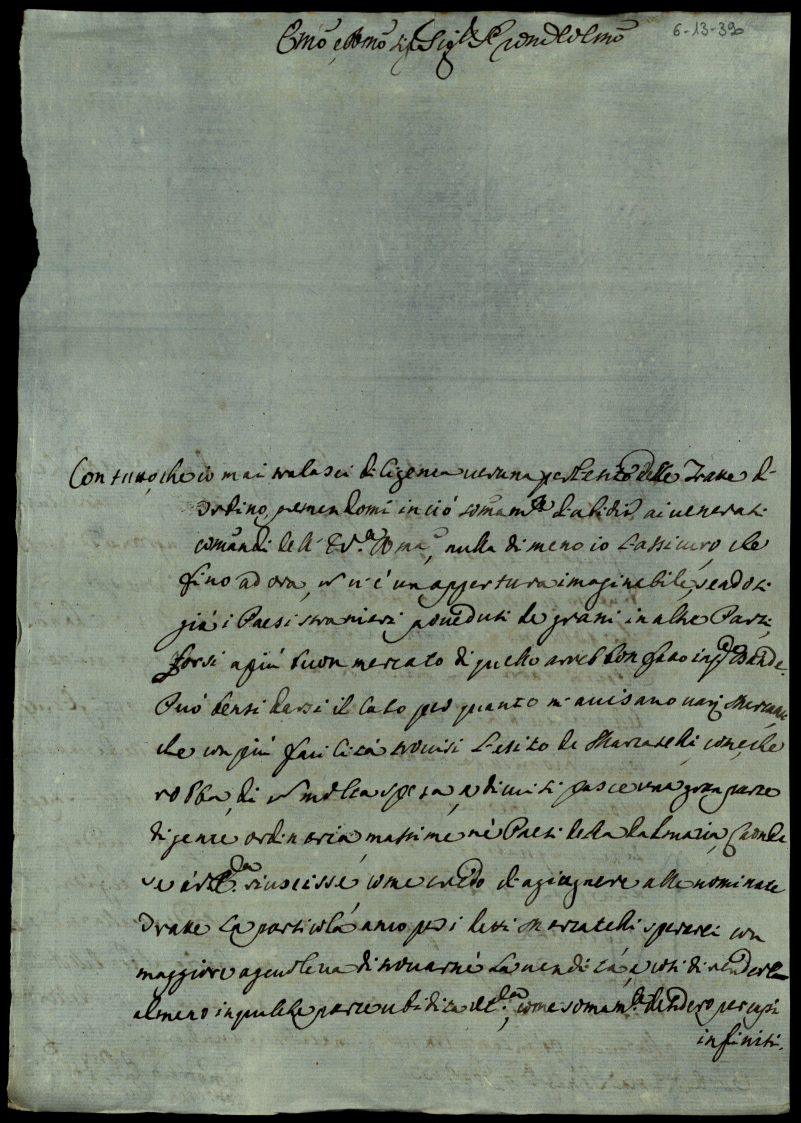 6-13-39
Emo e Rmo Sig.r Sig.r Pron Colmo
Con tutto che io mai tralasci diligenza veruna per l'esito delle Tratte d'
Ordino, premendomi in ciò somam.te di ubidir ai venerati
comandi dell' E V.a Rma, nulla di meno io l'assicuro che
fino ad ora, non v'è un appertura imaginabile, sendosi
già i Paesi stranieri proveduti de grani in altre Parti
forsi a più buon mercato di quello avrebbon fatto in q.te Bande.
Può bensi darsi il caso per quanto m'avisano varj Mercanti
che con più facilità trovisi l'esito de Marzatelli, come che
robba, di non molta spesa, e di cui si pasce una gran parte
di gente ordinaria massime nè Paesi della Dalmazia, Laonde
se à riuscisse, come credo di agiugnere alle nominate
Tratte la particola anco per i detti Marzatelli sperarei con
maggiore agevolezza di trovarne la vendita, e così di renderla
almeno in qualche parte ubidita come somam.te desidero per capi
infiniti.